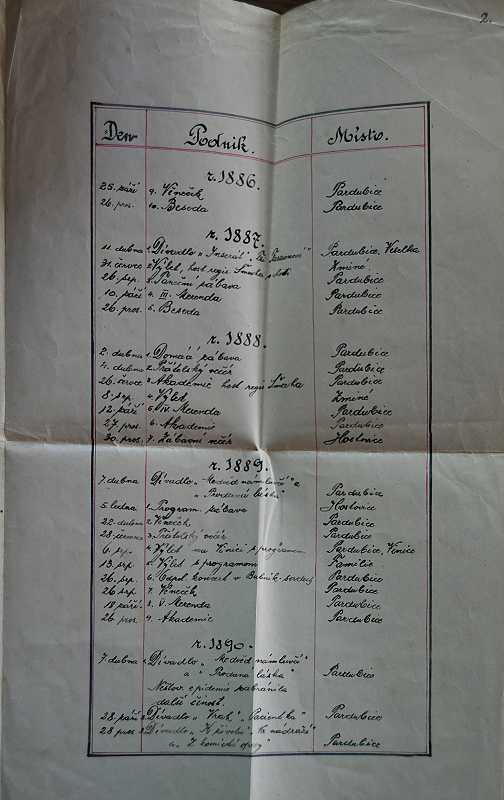 2.
Den Podnik. Místo.
r. 1886.
25. září 9. Věneček Pardubice
26. pros. 10. Beseda Pardubice
r. 1887.
11. dubna 1. Divadlo „Inserát" Pardubice, Veselka
31. červce 2. Výlet, host regis. Šmaha Zminé
26. srp. 3. Taneční zábava Pardubice
10. září 4. III. Merenda Pardubice
26. pros. 5. Beseda Pardubice
r. 1888.
2. dubna 1. Domácí zábava Pardubice
4. dubna 2. Přátelský večer Pardubice
26. červce 3. Akademie host regis Šmaha Pardubice
8. srp. 4. Výlet Zminé
12. září 5. IV. Merenda Pardubice
27. pros. 6. Akademie Pardubice
30. pros. 7. Zábavní večer Hostovice
r. 1889.
7. dubna Divadlo „Medvěd námluvčí" a
„Prodaná láska" Pardubice
5. ledna 1. Program. zábava Hostovice
22. dubna 2. Věneček Pardubice
28. července 3. Přátelský večer Pardubice
6. srp. 4. Výlet na Vinici s programem Pardubice, Vinice
13. srp. 5. Výlet s programem
26. srp. 6. Odpol. koncert v Bubník. Pardubice
26 srp. 7. Věneček Pardubice
18 září. 8. V. Merenda Pardubice
26. pros. 9. Akademie Pardubice
r. 1890.
7. dubna 1. Divadlo „Medvěd námluvčí"
a „Prodaná láska" Pardubice
Neštov. epidemie zabránila
další činost.
28. září 2. Divadlo „Vrah", „Pacientka" Pardubice
28 pros 3. Divadlo „K životu", „Na nádraží"
a „Z komické opery" Pardubice